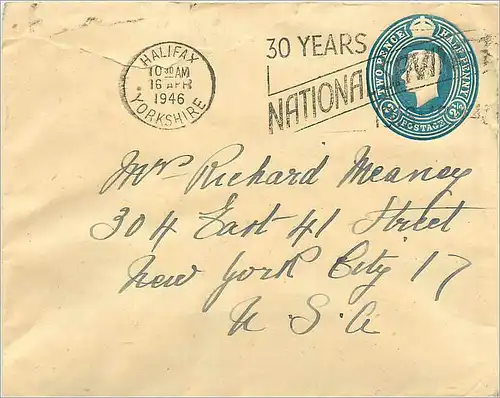 HALIFAX
10 30 AM
16 APR
1946
YORKSHIRE
30 YEARS
NATIONAL
TWO PENCE HALFPENNY
POSTAGE
2½ 2½
Mr Richard Meaney
304 East 41 Street
New York City 17
U. S. A